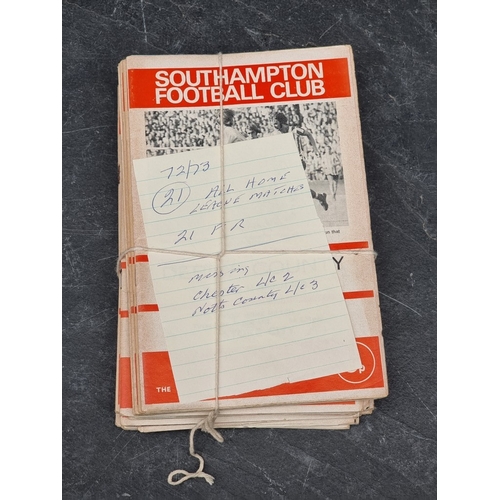 SOUTHAMPTON
FOOTBALL CLUB
72/73
21 ALL HOME
LEAGUE MATCHES
21 F R
Missing
Chester L/c 2
Notts County L/c 3
Y
THE
p